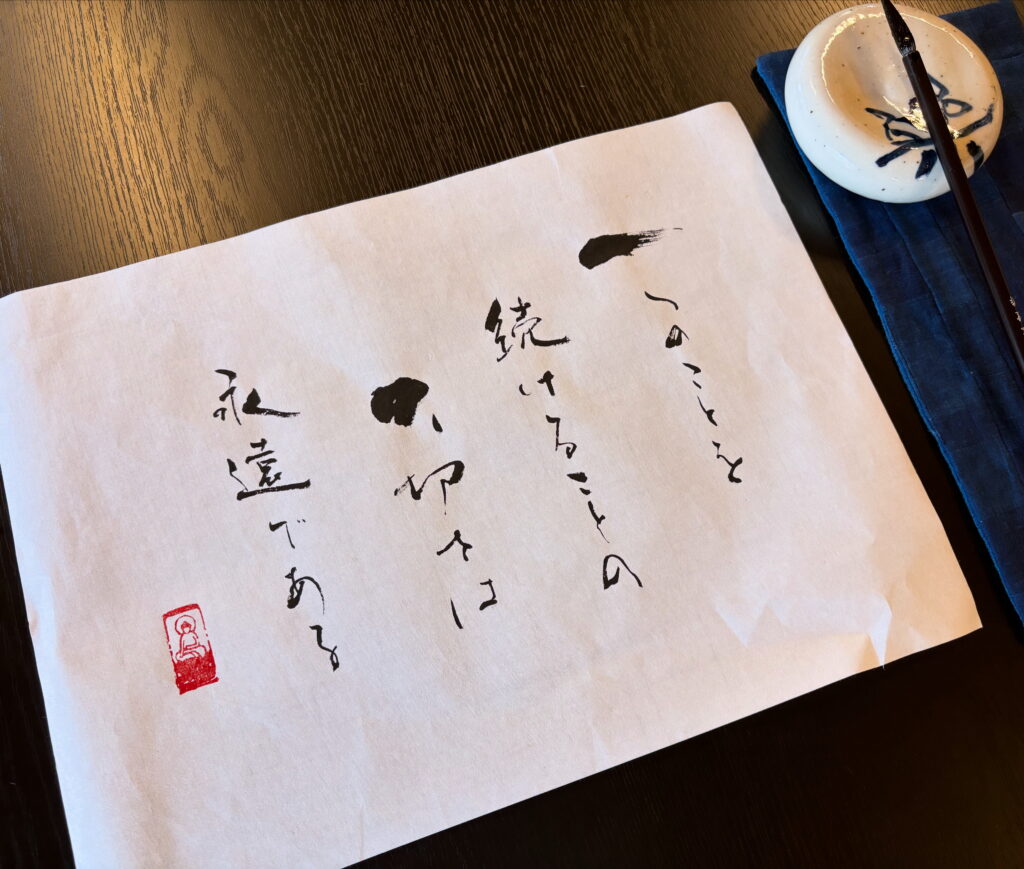 一つのことを
続けることの
大切さは
永遠である